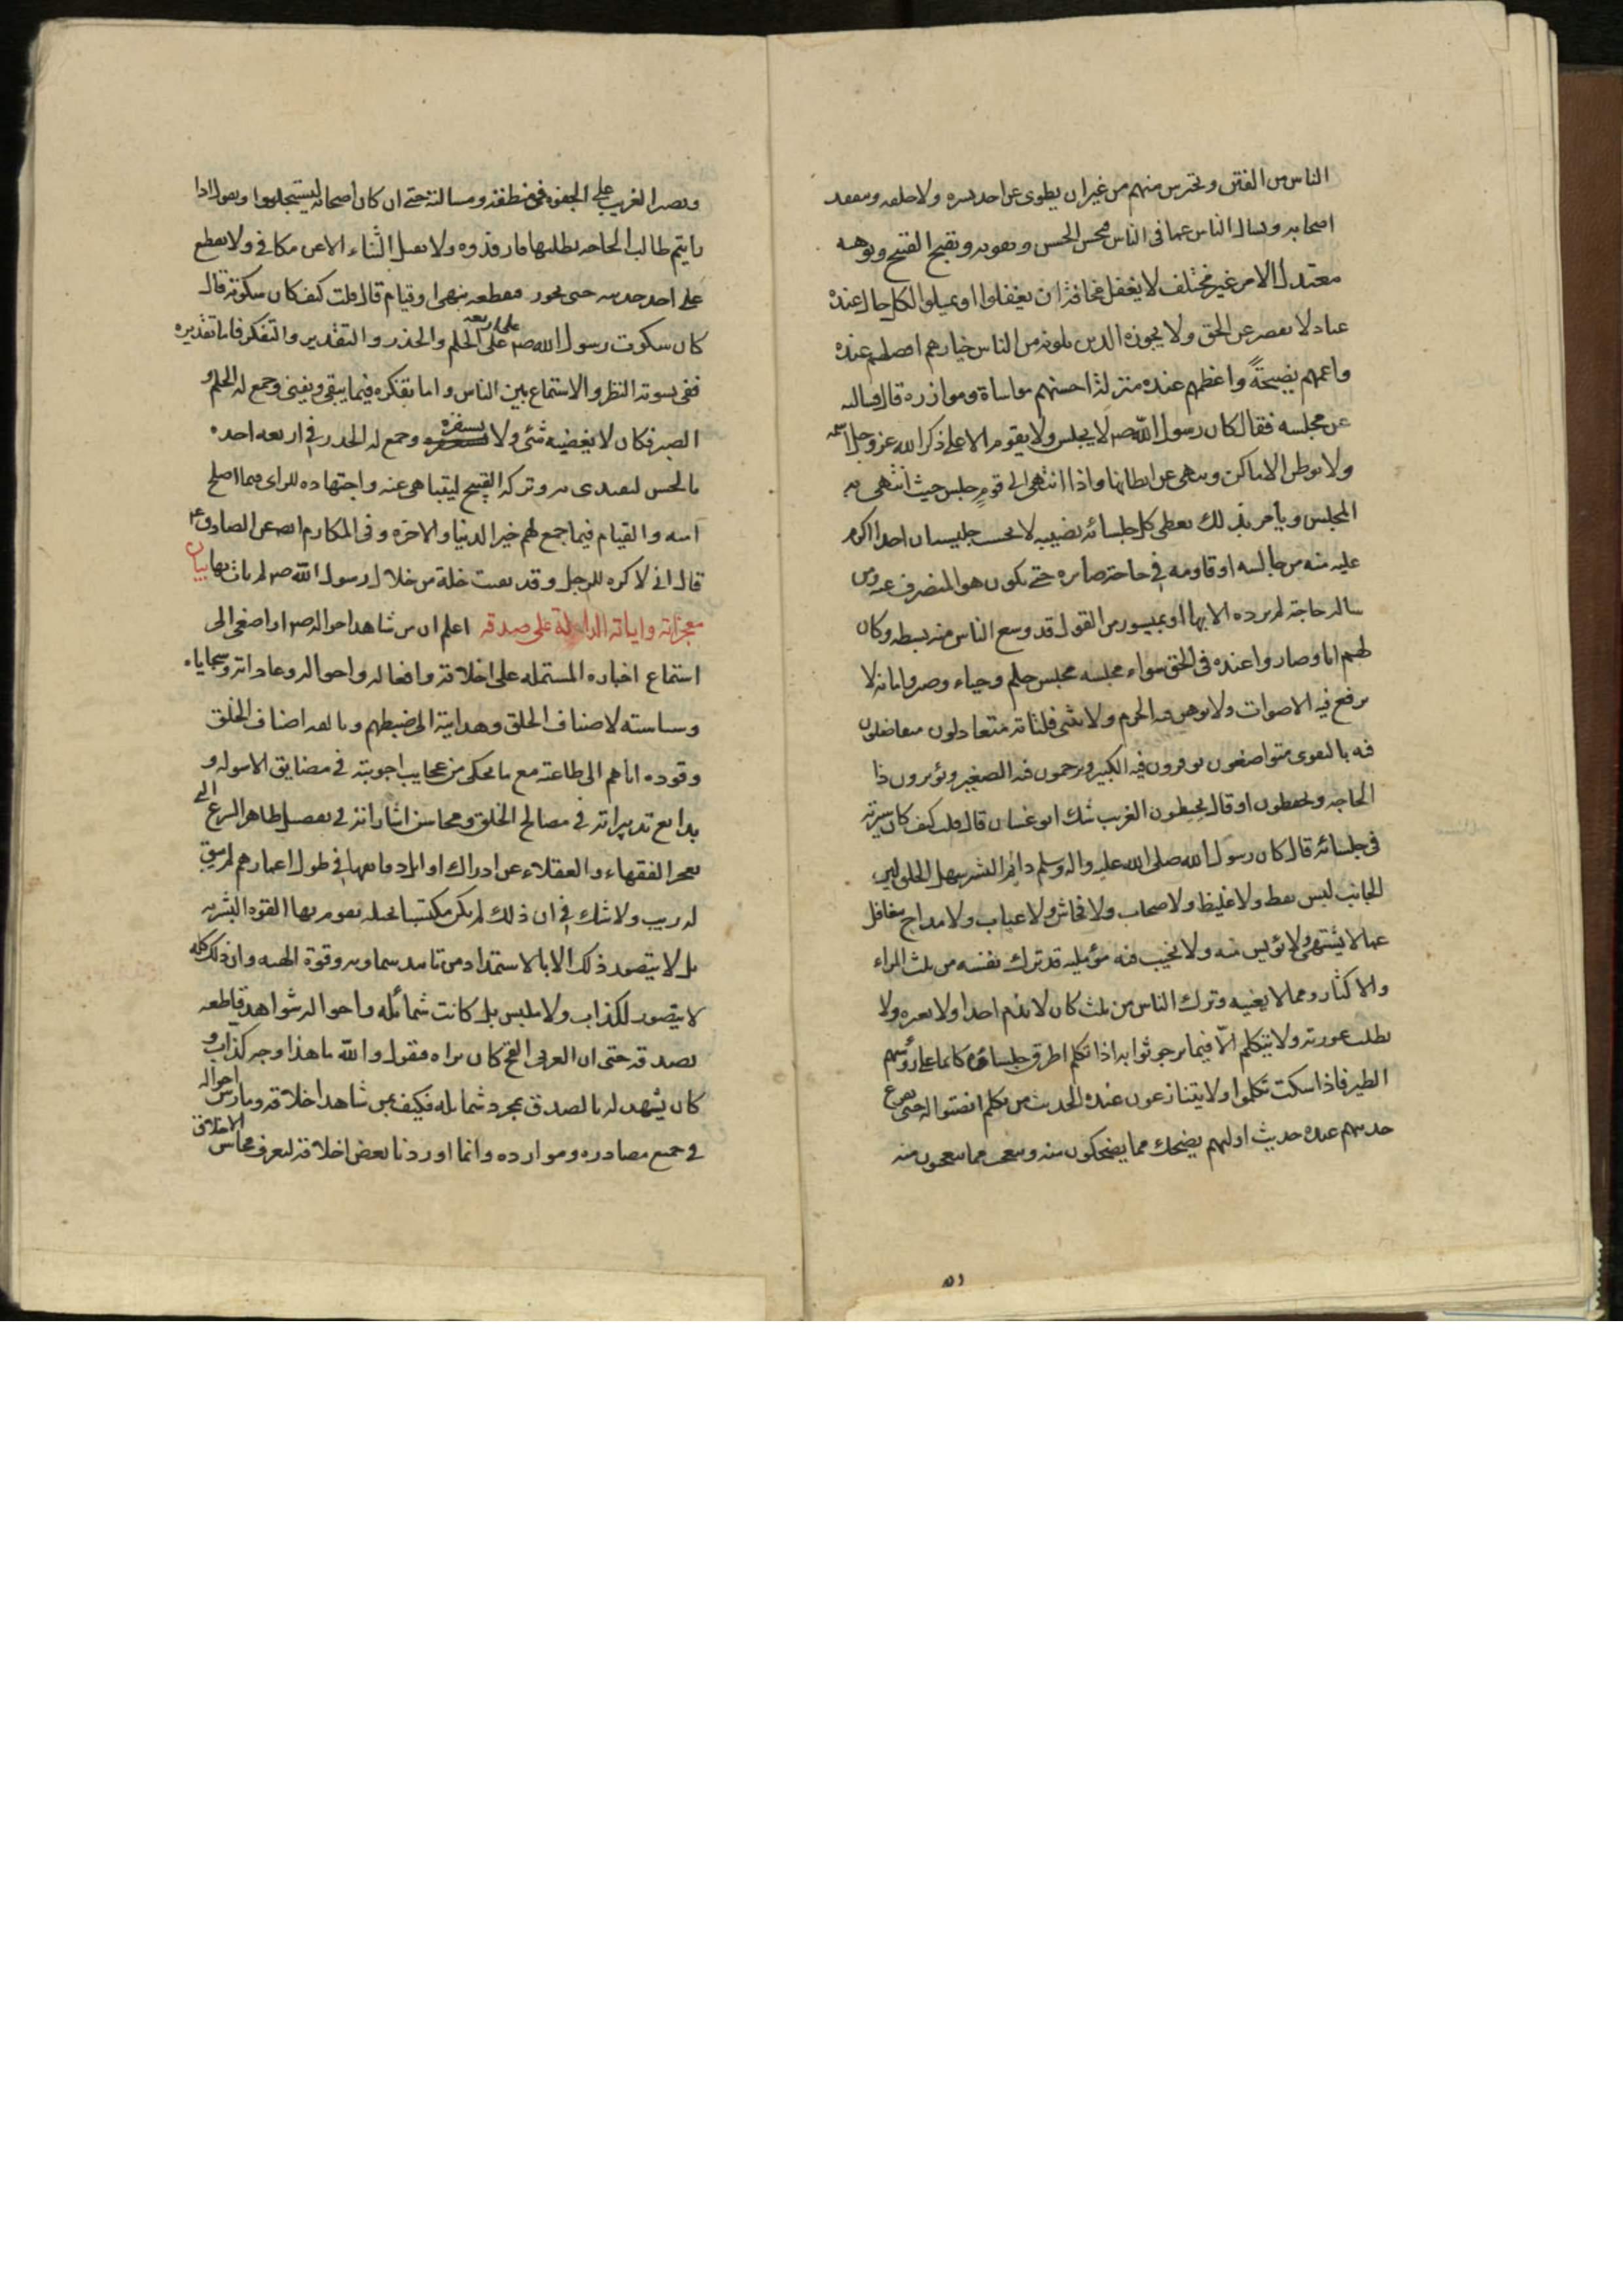 الناس من الفتن ويحترس منهم من غير ان يطوى عن احد بشره ولا خلقه ويتفقد
اصحابه ويسال الناس عما فى الناس فيحسن الحسن ويقويه ويقبح القبيح ويوهنه
معتدل الامر غير مختلف لا يغفل مخافة ان يغفلوا او يميلوا لكل حال عنده
عتاد لا يقصر عن الحق ولا يجوزه الذين يلونه من الناس خيارهم افضلهم عنده
واعمهم نصيحةً واعظمهم عنده منزلة احسنهم مواساة وموازره قال فسالته
عن مجلسه فقال كان رسول الله ص لا يجلس ولا يقوم الا على ذكر الله عز وجل اسمه
ولا يوطن الاماكن وينهى عن ايطانها واذا انتهى الى قومٍ جلس حيث انتهى به
المجلس ويأمر بذلك يعطى كل جلسائه نصيبه لا يحسب جليسه ان احدا اكرم
عليه منه من جالسه او قاومه فى حاجة صابره حتى يكون هو المنصرف عنه ومن
ساله حاجة لم يرده الا بها او بميسور من القول قد وسع الناس منه بسطه وكان
لهم ابا وصاروا عنده فى الحق سواء مجلسه مجلس حلم وحياء وصبر وامانة لا
ترفع فيه الاصوات ولا توهن فيه الحرم ولا تنثى فلتاته متعادلون متفاضلون
فيه بالتقوى متواضعون يوقرون فيه الكبير ويرحمون فيه الصغير ويؤثرون ذا
الحاجه ويحفظون او قال يحيطون الغريب شك ابو غسان قال قلت كيف كان سيرته
فى جلسائه قال كان رسول الله صلى الله عليه واله وسلم دائم البشر سهل الخلق لين
الجانب ليس بفظ ولا غليظ ولا صخاب ولا فحاش ولا عياب ولا مداح يتغافل
عما لا يشتهى ولا يؤيس منه ولا يخيب فيه مؤمليه قد ترك نفسه من ثلث المراء
والاكثار ومما لا يعنيه وترك الناس من ثلث كان لا يذم احدا ولا يعيره ولا
يطلب عورته ولا يتكلم الّا فيما يرجو ثوابه اذا تكلم اطرق جلساؤه كانما على رؤسهم
الطير فاذا سكت تكلموا ولا يتنازعون عنده الحديث من تكلم انصتوا له حتى يفرغ
حديثهم عنده حديث اولهم يضحك مما يضحكون منه ويتعجب مما يتعجبون منه
ويصبر الغريب على الجفوة فى منطقه ومسالته حتى ان كان اصحابه ليستجلبونه ويقول اذا
رايتم طالب الحاجه يطلبها فارفدوه ولا يقبل الثناء الا من مكافى ولا يقطع
على احد حديثه حتى يجوز فيقطعه بنهى او قيام قال قلت كيف كان سكوته قال
كان سكوت رسول الله ص على اربعه على الحلم والحذر والتقدير والتفكر فاما تقديره
ففى تسويته النظر والاستماع بين الناس واما تفكره فيما يبقى ويفنى وجمع له الحلم و
الصبر فكان لا يغضبه شئى ولا يستفزه وجمع له الحذر فى اربعه اخذه
بالحسن ليقتدى به وتركه القبيح ليتناهى عنه واجتهاده للراى فيما اصلح
امته والقيام فيما جمع لهم خير الدنيا والاخرة وفى المكارم ايضا عن الصادق ع
قال انى لاكره للرجل وقد بقيت خلة من خلال رسول الله ص لم يات بها بيان
معجزاته واياته الدالة على صدقه اعلم ان من شاهد احواله ص او اصغى الى
استماع اخباره المشتمله على اخلاقه وافعاله واحواله وعاداته وسجاياه
وسياسته لاصناف الخلق وهدايته الى ضبطهم وتالفه اصناف الخلق
وقوده اياهم الى طاعته مع ما يحكى من عجايب اجوبته فى مضايق الاسوله و
بدايع تدبيراته فى مصالح الخلق ومحاسن اشاراته فى تفصيل ظاهر الشرع الى
يعجز الفقهاء والعقلاء عن ادراك اوايل دقايقها فى طول اعمارهم لم يبق
له ريب ولا شك فى ان ذلك لم يكن مكتسبا بحيله يقوم بها القوه البشريه
بل لا يتصور ذلك الا بالاستمداد من تاييد سماوى وقوة الهيه وان ذلك كله
لا يتصور لكذاب ولا ملبس بل كانت شمائله واحواله شواهد قاطعه
بصدقه حتى ان العربى القح كان يراه فيقول والله ما هذا وجه كذاب و
كان يشهد له بالصدق بمجرد شمايله فكيف بمن شاهد اخلاقه ومارس احواله
فى جميع مصادره وموارده وانما اوردنا بعض اخلاقه ليعرف محاسن الاخلاق